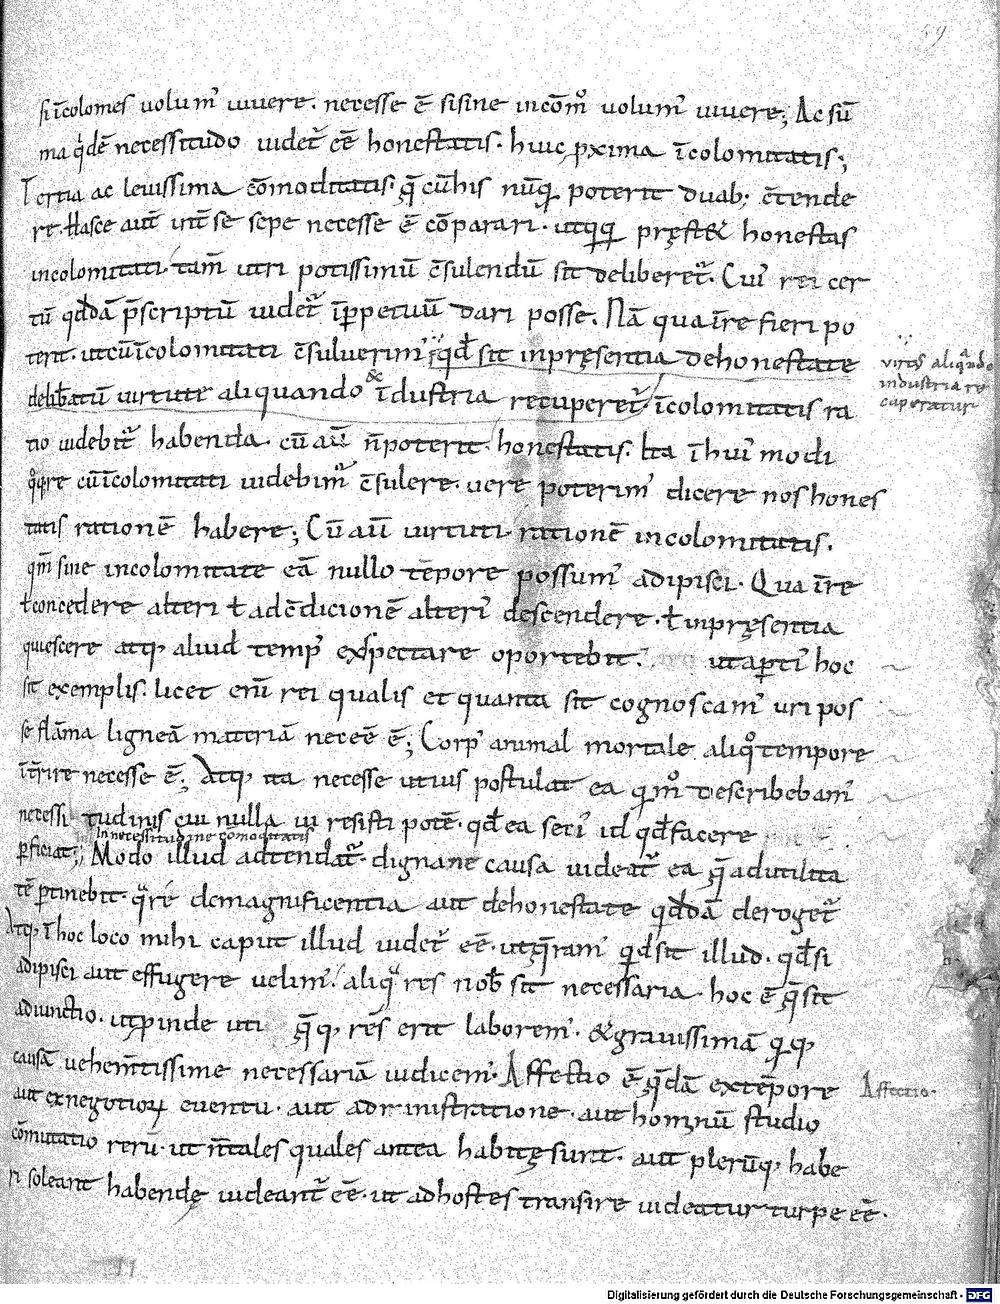 59
si īcolomes uolum᷒ uiuere. necesse ē si sine incōm̊ uolum᷒ uiuere; Ac sū
ma q̇dē necessitudo uidet᷒ eē honestatis. huic ꝓxima īcolomitatis;
Tertia ac leuissima cōmoditatis. q̄ cū his nūq̨ poterit duab; c̄tende
re. Hasce aut̄ int̄ se sepe necesse ē cōparari. utq̨q̨ pręst& honestas
incolomitati. tam̄ utri potissimū c̄sulendū sit deliberet᷒. Cui᷒ rei cer
tū qđdā p̄scriptū uidet᷒ īꝑpetuū dari posse. Nā qua īre fieri po
terit. ut cū īcolomitati c̄suluerim᷒ qđ sit inpręsentia de honestate
delibatū uirtute aliquando & īdustria recuperet᷒. īcolomitatis ra
uirtus aliquando
industria re
caperatur
tio uidebit᷒ habenda. cū aū n̄ poterit. honestatis. Ita ī hui᷒ modi
q̊q̨ re cū īcolomitati uidebim᷒ c̄sulere. uere poterim᷒ dicere nos hones
tatis rationē habere; Cū aū uirtuti rationē incolomitatis.
qm̄ sine incolomitate eā nullo tēpore possum᷒ adipisci. Qua īre
ł concedere alteri ł ad c̄dicionē alteri᷒ descendere. ł inpręsentia
quiescere atq; aliud temp᷒ exspectare oportebit. ut aꝑti᷒ hoc
sit exemplis. licet eni᷒ rei qualis et quanta sit cognoscam᷒ uri pos
se flāma ligneā materiā neceē ē; Corp᷒ animal mortale aliq̊ tempore
īt̄ire necesse ē; Atq; ita necesse utius postulat ea q̨m̊ describebam᷒
necessitudinis cui nulla ui resisti potē. qđ ea seti᷒ id qđ facere
In necessitudine cōmoditatis
ꝑficiat; Modo illud adtendat᷒. dignane causa uideat᷒ ea q̄ ad utilita
tē ꝑtinebit. q̄re de magnificentia aut de honestate qđdā deroget᷒
Atq; ī hoc loco mihi caput illud uidet᷒ eē. ut q̄ram᷒ qđ sit illud. qđ si
adipisci aut effugere uelim᷒. aliq̄ res nob̄ sit necessaria. hoc ē q̄ sit
adiunctio. ut ꝓinde uti q̄q; rēs erit laborem᷒. & grauissimā q̨q;
causā uehem̄tissime necessariā iudicem᷒. Affectio ē q̄dā ex tēpore
Affectio.
aut ex negotioꝝ euentu. aut administratione. aut hominū studio
cōmutatio rerū. ut n̄ tales quales antea habitę sunt. aut plerūq; habe
ri soleant habendę uideant᷒ eē. ut ad hostes transire uideatur turpe eē.
Digitalisierung gefördert durch die Deutsche Forschungsgemeinschaft - DFG